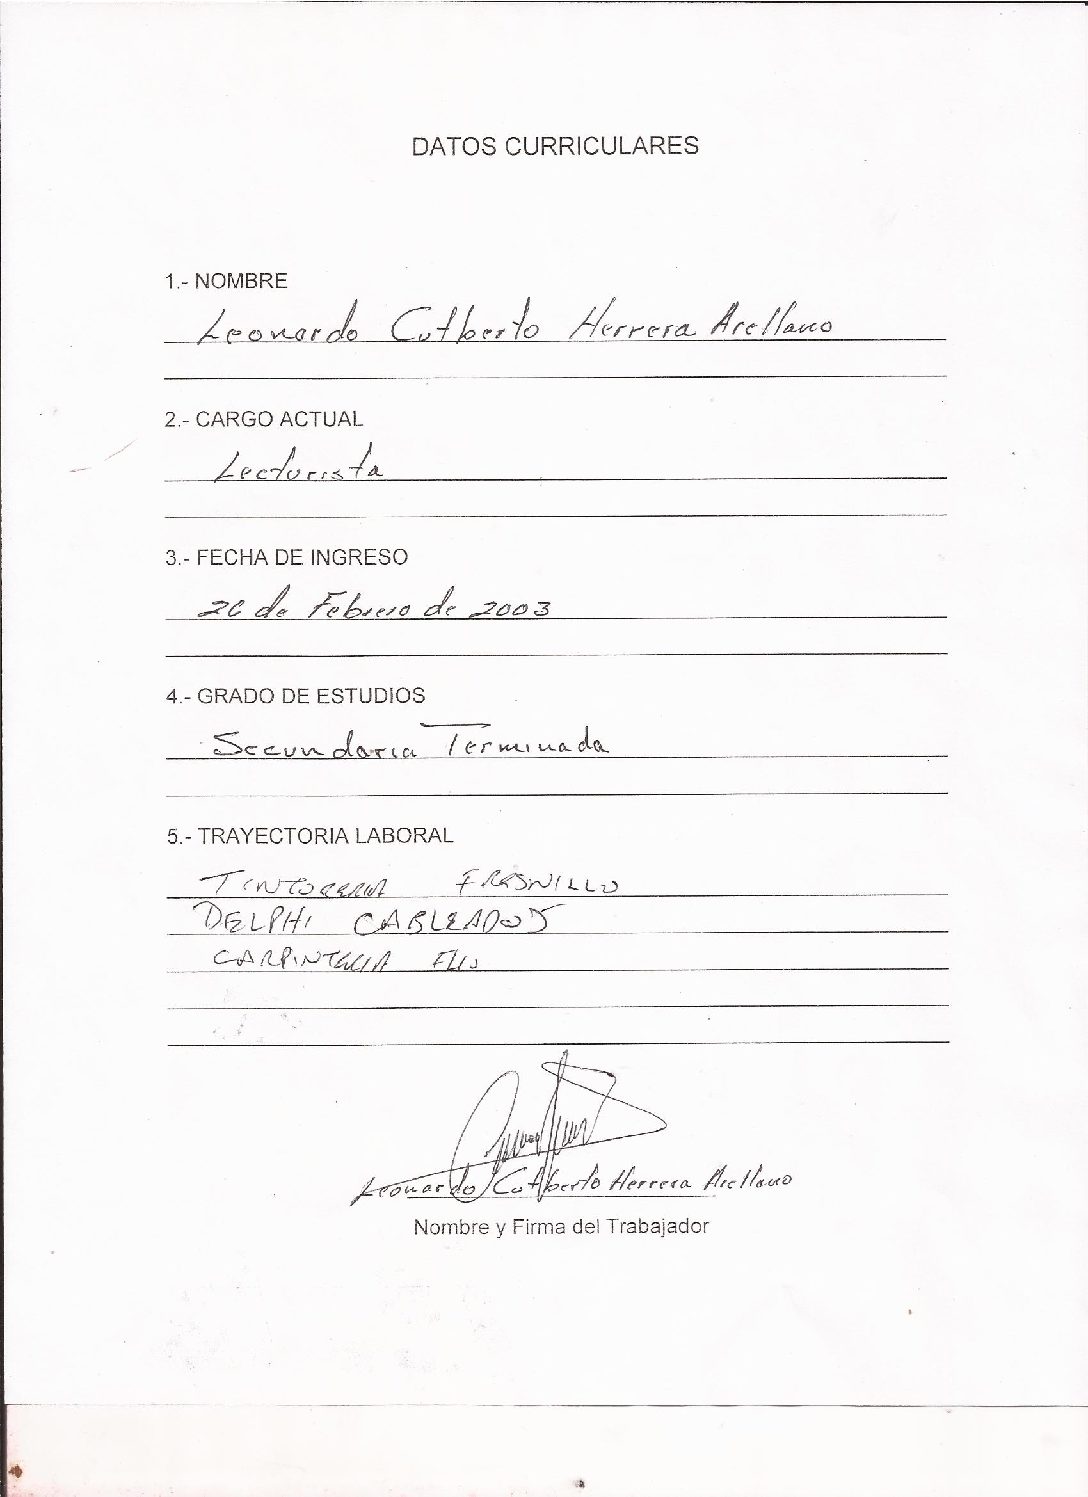 DATOS CURRICULARES
1.- NOMBRE
Leonardo Cutberto Herrera Arellano
2.- CARGO ACTUAL
Lecturista
3.- FECHA DE INGRESO
de Febrero de 2003
4.- GRADO DE ESTUDIOS
Secundaria Terminada
5.- TRAYECTORIA LABORAL
TINTORERIA FRESNILLO
DELPHI CABLEADOS
CARPINTERIA
Leonardo Cutberto Herrera Arellano
Nombre y Firma del Trabajador